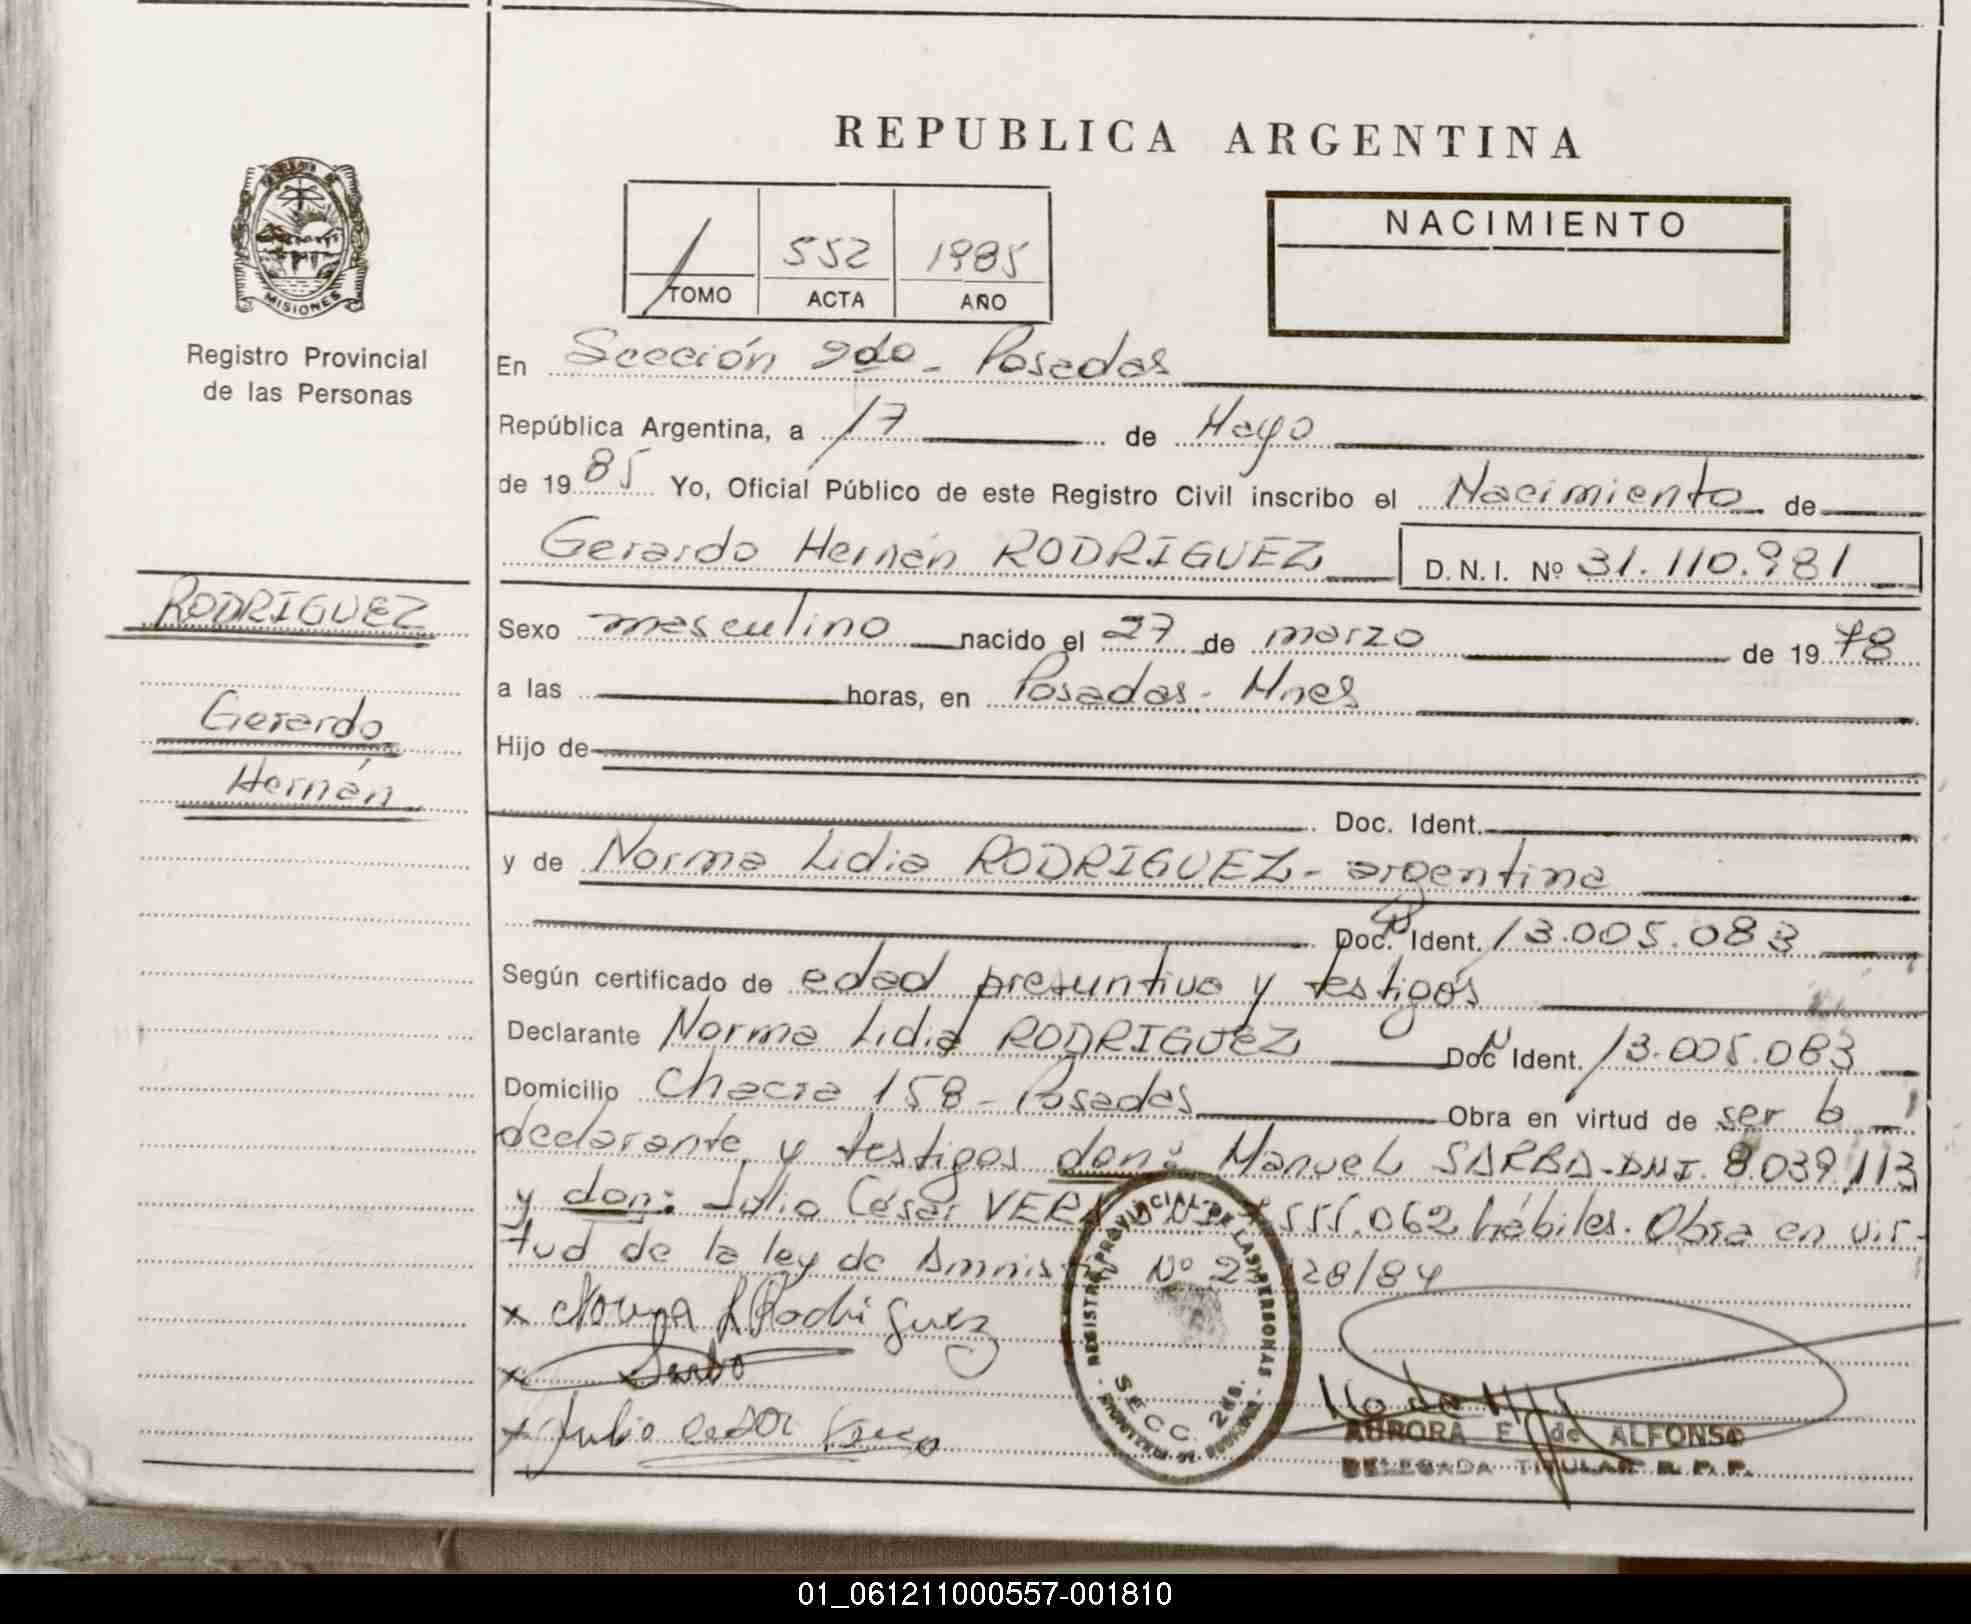 REPUBLICA ARGENTINA
NACIMIENTO
552 1985
TOMO ACTA AÑO
MISIONES
Registro Provincial
de las Personas
RODRIGUEZ
Gerardo
Hernán
En Sección 2do - Posadas
República Argentina, a 17 de Mayo
de 1985 Yo, Oficial Público de este Registro Civil inscribo el Nacimiento de
Gerardo Hernán RODRIGUEZ D.N.I. Nº 31.110.981
Sexo masculino nacido el 27 de marzo de 1978
a las horas, en Posadas - Mnes
Hijo de
Doc. Ident.
y de Norma Lidia RODRIGUEZ - argentina
Doc. Ident. 13.005.083
Según certificado de edad presuntiva y testigos
Declarante Norma Lidia RODRIGUEZ Doc Ident. 13.005.083
Domicilio Chacra 158 - Posadas Obra en virtud de ser la
declarante y testigos don: Manuel SARBA - DNI. 8.039.113
y don: Julio César 555.062 hábiles. Obra en vir-
tud de la ley de Nº 28/84
x Norma L Rodriguez
x Sarba
x Julio cesar
REGISTRO PROVINCIAL DE LAS PERSONAS
SECC. 2da.
AURORA E. de ALFONSO
DELEGADA TITULAR R. P. P.
01_061211000557-001810